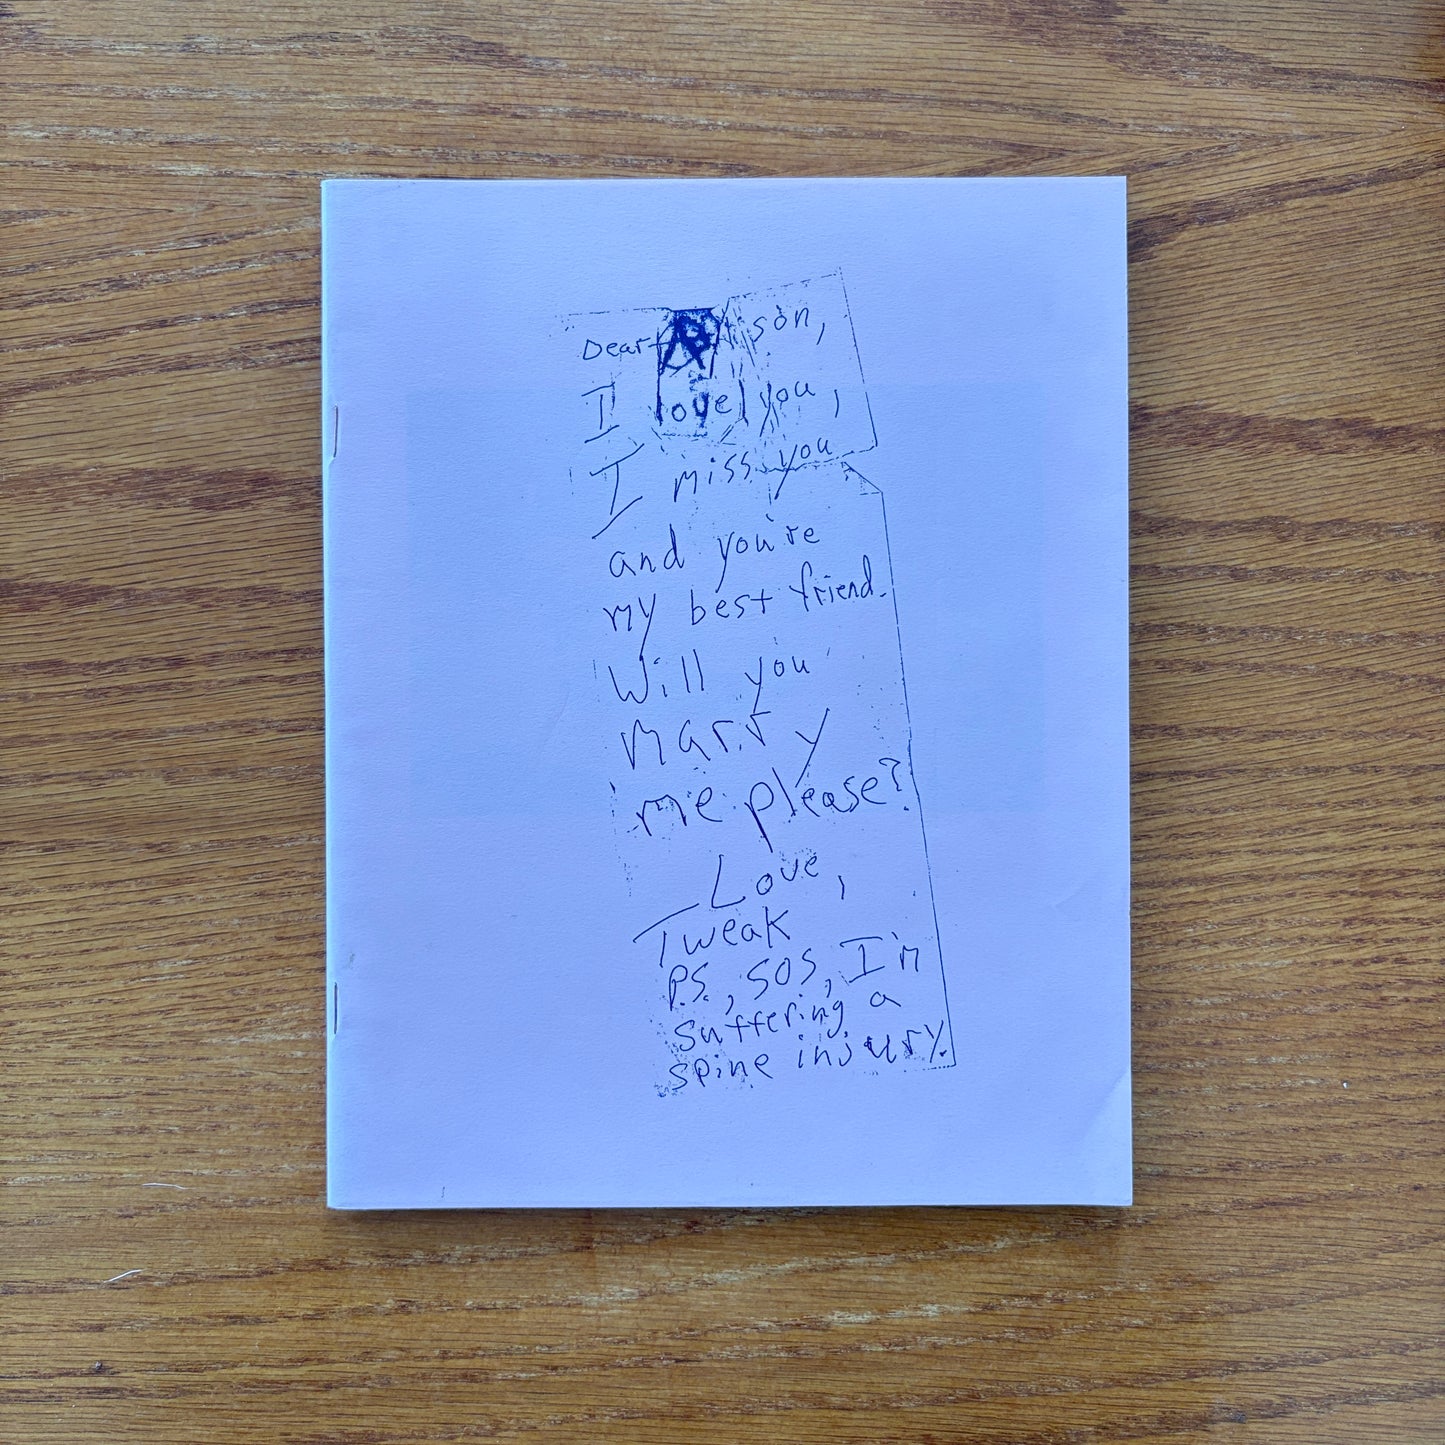 Dear Alison,
I love you,
I miss you
and you're
my best friend.
Will you
marry
me please?
Love,
Tweak
P.S., SOS, I'm
suffering a
spine injury.